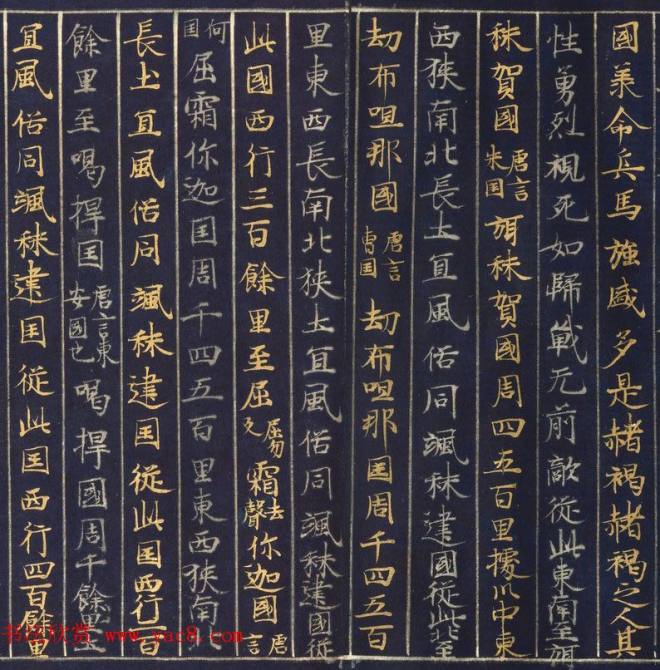 國承命兵馬強盛多是赭褐赭褐之人其
性勇烈視死如歸戰无前敵從此東南至弭
秣賀國唐言米囯弭秣賀國周四五百里據川中東
西狹南北長土宜風俗同颯秣建國從此北至
劫布呾那國唐言曹囯劫布呾那囯周千四五百
里東西長南北狹土宜風俗同颯秣建國從
此國西行三百餘里至屈屈勿反霜去聲你迦國唐言
何囯屈霜你迦囯周千四五百里東西狹南北
長土宜風俗同颯秣建囯從此囯西行二百
餘里至喝捍囯唐言東安國也喝捍國周千餘里土
宜風俗同颯秣建囯從此囯西行四百餘里
书法欣赏 www.yac8.com